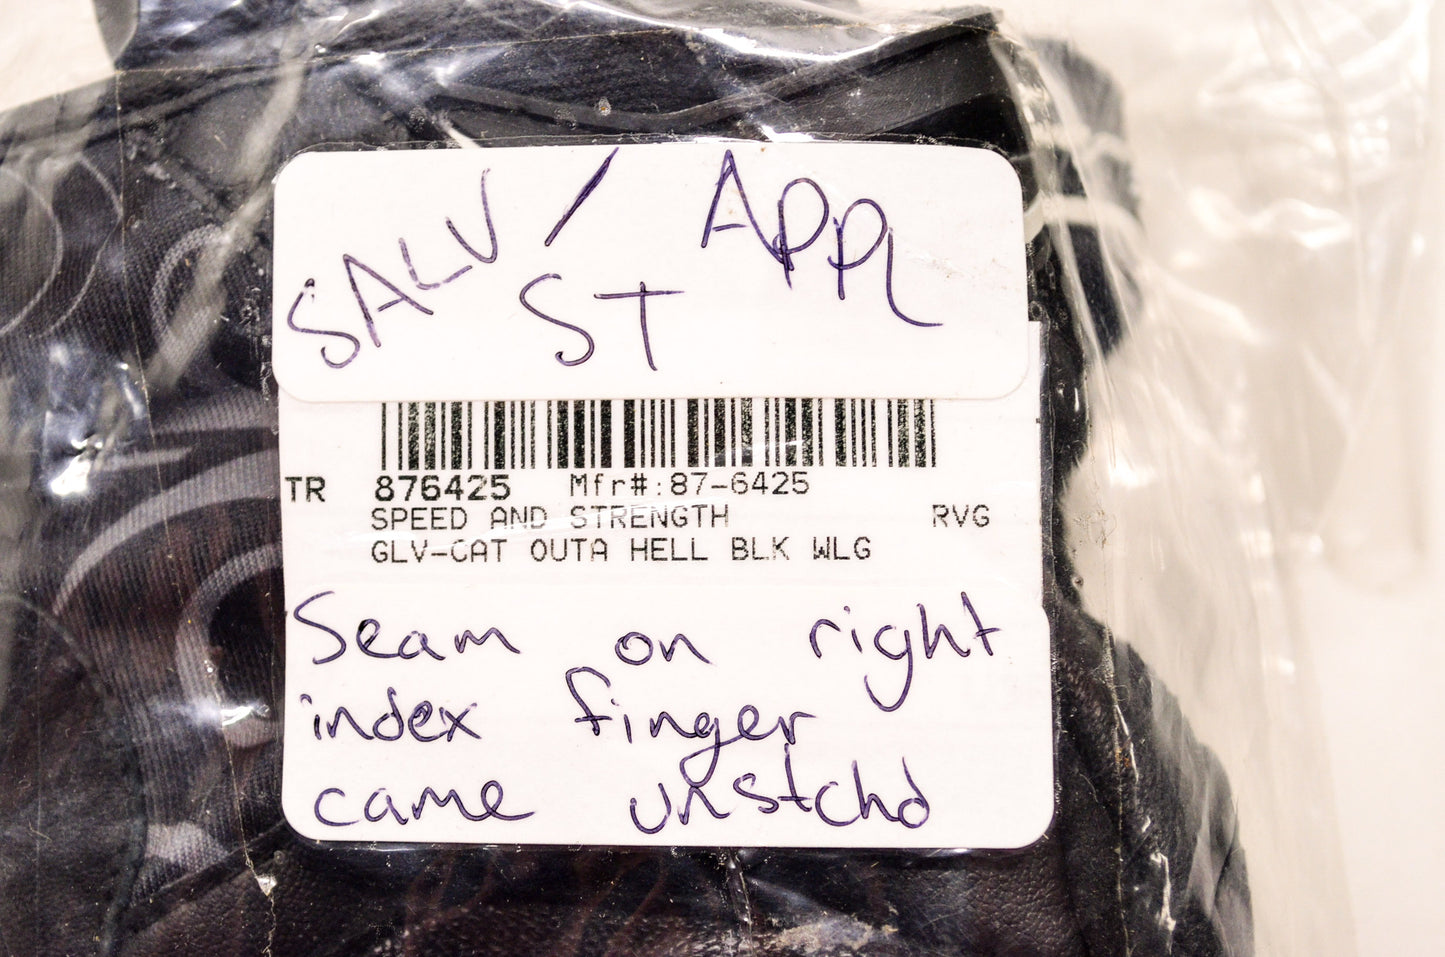 SALV / APPL
ST
TR 876425 Mfr#:87-6425
SPEED AND STRENGTH RVG
GLV-CAT OUTA HELL BLK WLG
Seam on right
index finger
came unstchd